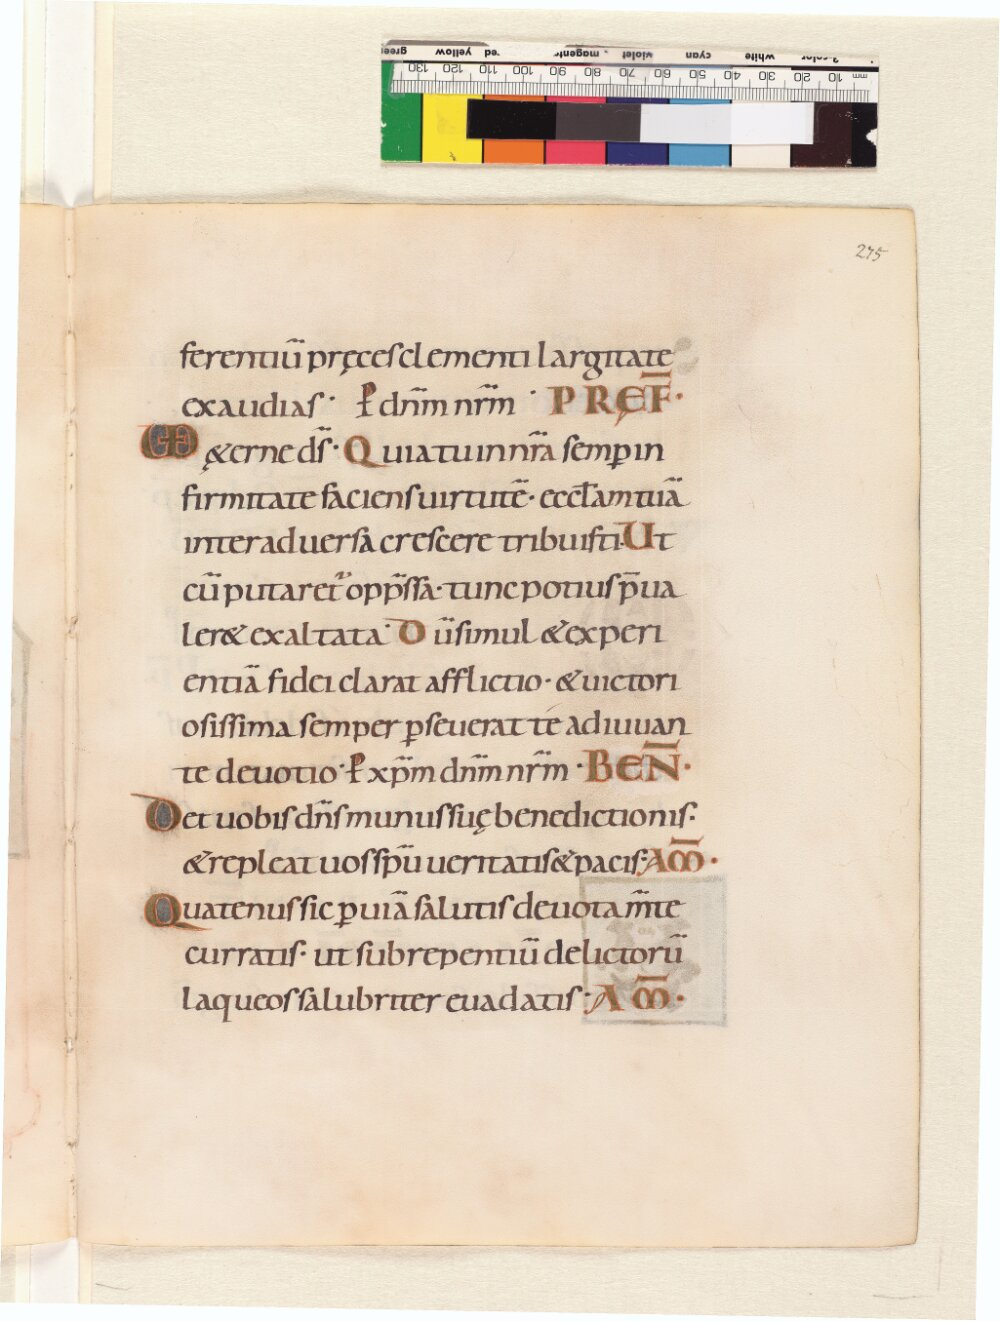 green yellow red magenta violet cyan white 3-color
130 120 110 100 90 80 70 60 50 40 30 20 10 mm
275
ferentiū pręces clementi largitate
exaudias· P̄ dn̄m nr̄m · PREF̄·
VD &erne ds̄· Quia tu in nr̄a semp̱ in
firmitate faciens uirtutē· eccl̄am tuā
inter aduersa crescere tribuisti· Ut
cū putaret᷑ opp̄ssa· tunc potius p̄ua
ler& exaltata· Dū simul & experi
entiā fidei clarat afflictio· & uictori
osissima semper p̱seuerat te adiuuan
te deuotio· P̄ xp̄m dn̄m nr̄m · BEN̄·
Det uobis dn̄s munus suę benedictionis·
& repleat uos sp̄u ueritatis & pacis· AM̄·
Quatenus sic p̱ uiā salutis deuota m̄te
curratis· ut subrepentiū delictorū
laqueos salubriter euadatis· AM̄·